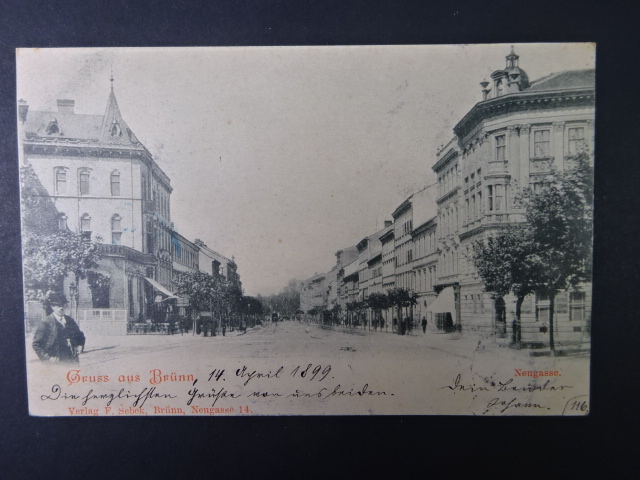 Gruss aus Brünn, 14. April 1899.
Neugasse.
Die herzlichsten Grüße von uns beiden.
Dein Bruder
Johann.
Verlag F. Sebek, Brünn, Neugasse 14.
116.